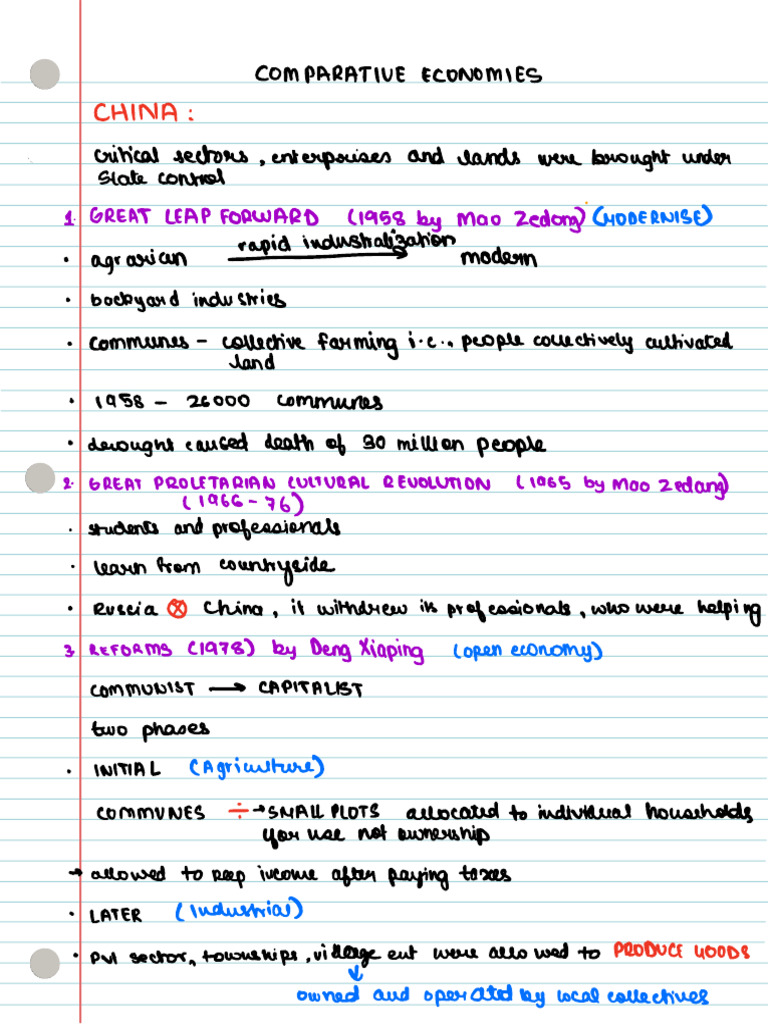 COMPARATIVE ECONOMIES
CHINA :
Critical sectors, enterprises and lands were brought under
State control
1. GREAT LEAP FORWARD (1958 by Mao Zedong) (MODERNISE)
• agrarian rapid industralization modern
• backyard industries
• Communes - collective farming i.e., people collectively cultivated
land
• 1958 - 26000 communes
• drought caused death of 30 million people
2. GREAT PROLETARIAN CULTURAL REVOLUTION (1965 by Mao Zedang)
(1966-76)
• students and professionals
• learn from countryside
• Russia ⊗ China, it withdrew its professionals, who were helping
3. REFORMS (1978) by Deng Xiaping (open economy)
COMMUNIST → CAPITALIST
two phases
• INITIAL (Agriculture)
COMMUNES ÷ → SMALL PLOTS allocated to individual households
for use not ownership
→ allowed to keep income after paying taxes
• LATER (Industrial)
• Pvt sector, townships, village ent were allowed to PRODUCE GOODS
↓
owned and operated by local collectives